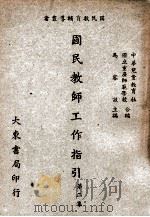 國民教育輔導叢書
中華兒童教育社
國立重慶師範學校
合編
馬客談 主編
國民教師工作指引
大東書局印行